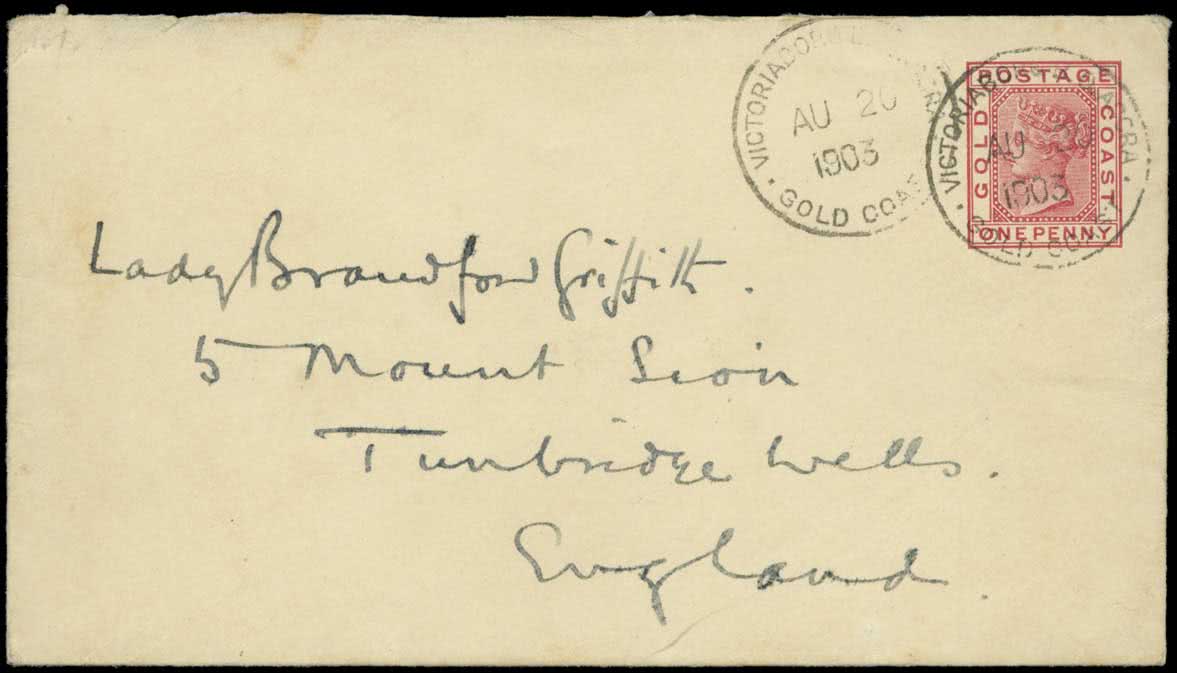 VICTORIABORG
AU 20
1903
GOLD COAST
VICTORIABORG ACCRA
AU 20
1903
GOLD COAST
POSTAGE
GOLD COAST
ONE PENNY
Lady Brandford Griffith.
5 Mount Sion
Tunbridge Wells.
England.